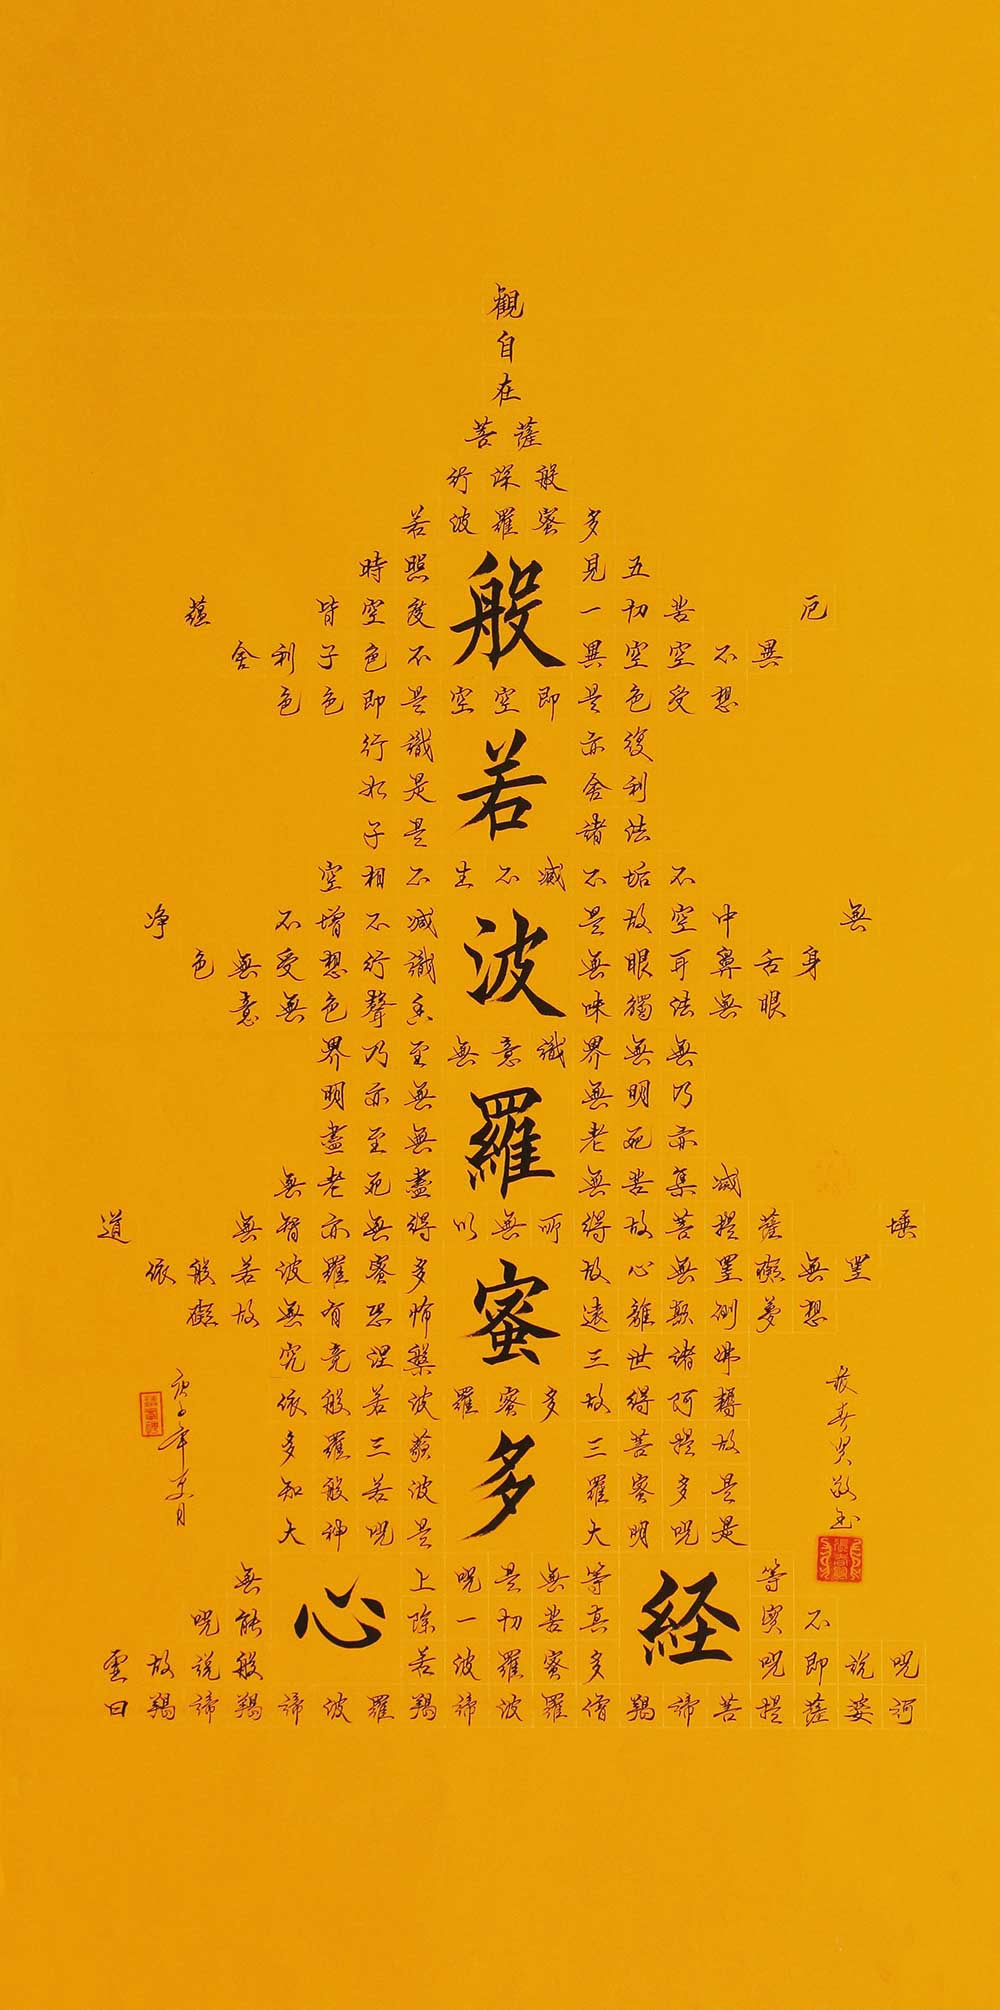 般若波羅蜜多心経
觀
自
在
菩薩
行深般
若波羅蜜多
時照見五
蘊皆空度一切苦厄
舍利子色不異空空不異
色色即是空空即是色受想
行識亦復
如是舍利
子是諸法
空相不生不滅不垢不
净不增不減是故空中無
色無受想行識無眼耳鼻舌身
意無色聲香味觸法無眼
界乃至無意識界無無
明亦無無明乃
盡至無老死亦
無老死盡無苦集滅
道無智亦無得以無所得故菩提薩埵
依般若波羅蜜多故心無罣礙無罣
礙故無有恐怖遠離顛倒夢想
究竟涅槃三世諸佛
依般若波羅蜜多故得阿耨
多羅三藐三菩提故
知般若波羅蜜多是
大神咒是大明咒是
無上咒是無等等
咒能除一切苦真實不
虛故說般若波羅蜜多咒即說咒
曰羯諦羯諦波羅羯諦波羅僧羯諦菩提薩婆訶
庚子年